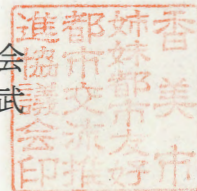 会
武
香美市
姉妹都市友好
都市交流推
進協議会印